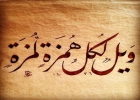 ويل لكل همزة لمزة